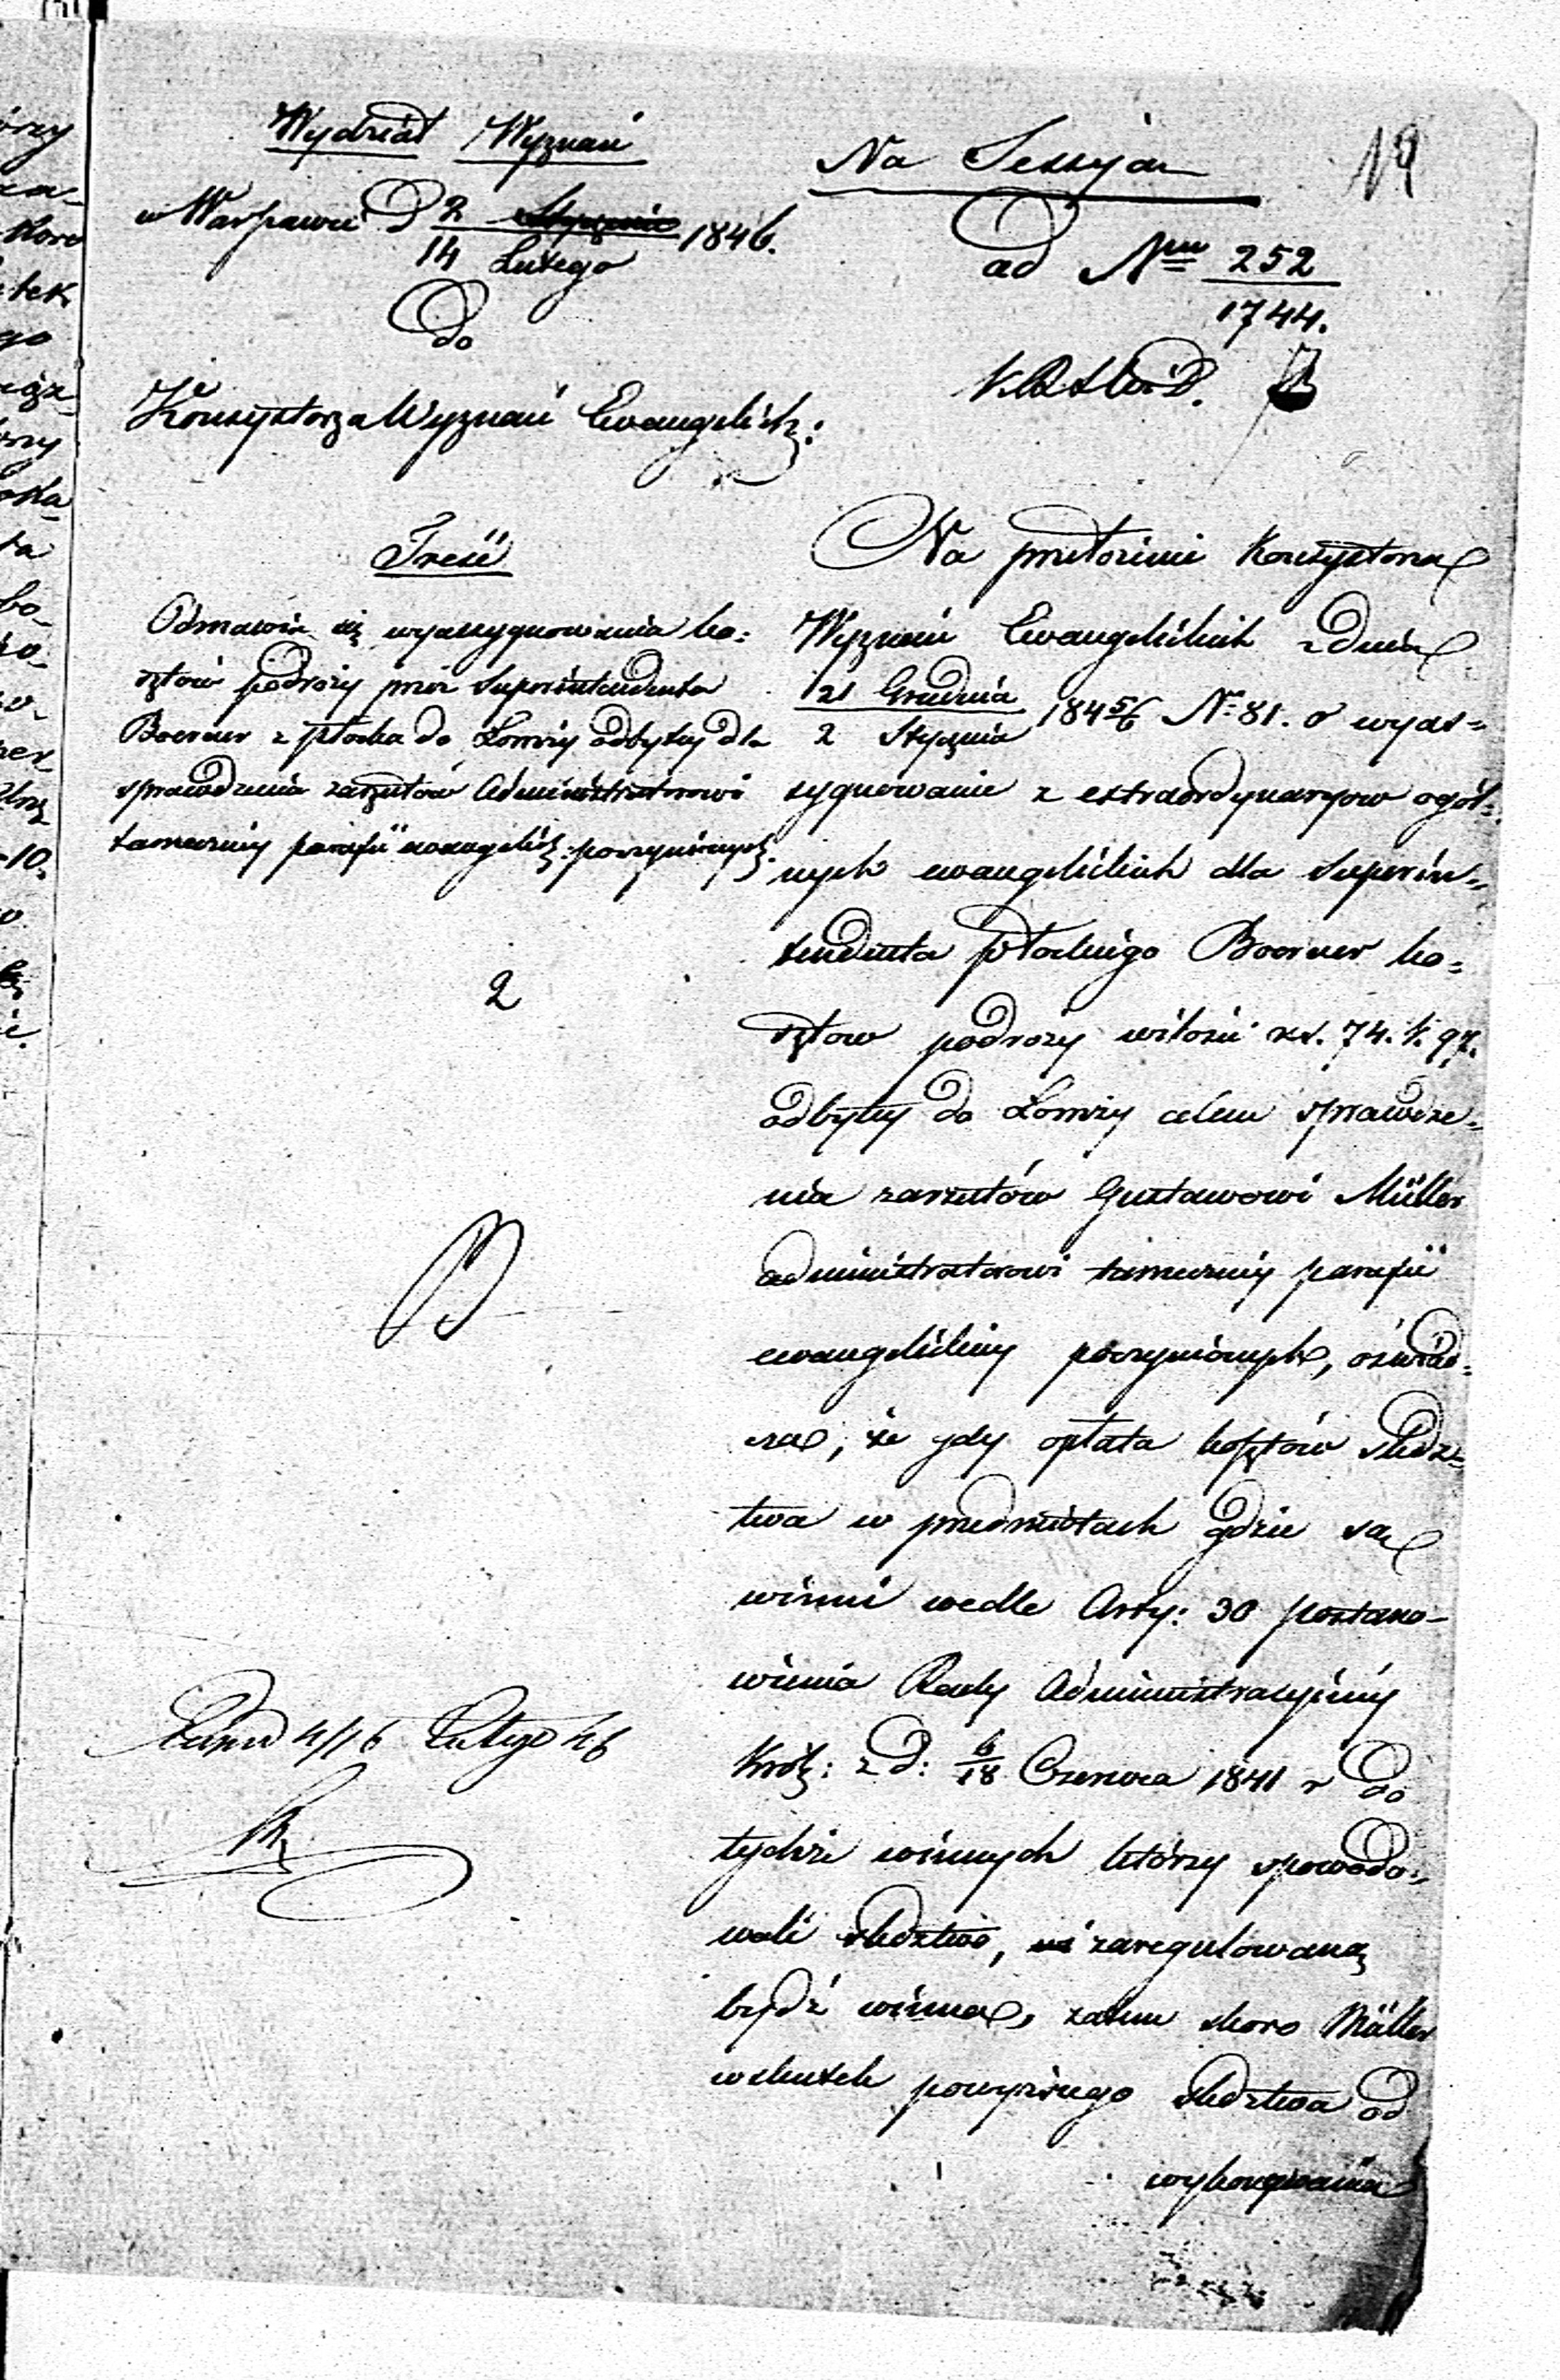 19
Wydział Wyznań
w Warszawie D 2 Stycznia / 14 Lutego 1846.
Do
Konsystorza Wyznań Ewangelick:
Na Sessyą
ad Nrm 252
1744.
Treść
Odmawia się wyassygnowania ko:
sztów podróży przez Superintendenta
Boerner z Płocka do Łomży odbytej dla
sprawdzenia zarzutów Administratorowi
tamecznej parafii ewangelick: poczynionych.
2
Na przełożenie Konsystorza
Wyznań Ewangelickich z dnia
21 Grudnia / 2 Stycznia 1845/6 No 81. o wyas=
sygnowanie z extraordynaryow ogól=
nych ewangelickich dla Superin=
tendenta Płockiego Boerner ko=
sztow podroży w ilości rs. 74. k. 97.
odbytej do Łomży celem sprawdze=
nia zarzutów Gustawowi Müller
administratorowi tamecznej parafii
ewangelickiej poczynionych, oświad=
cza, że gdy opłata kosztów śledz=
twa w przedmiotach gdzie są
winni wedle Arty: 30 postano-
wienia Rady Administracyjnej
Król: z d: 6/18 Czerwca 1841 r do
tychże winnych którzy spowodo=
wali śledztwo, zaregulowaną
bydź winna, zatem skoro Müller
wskutek powyższego śledztwa od
wykonywania
4/16 Lutego 46